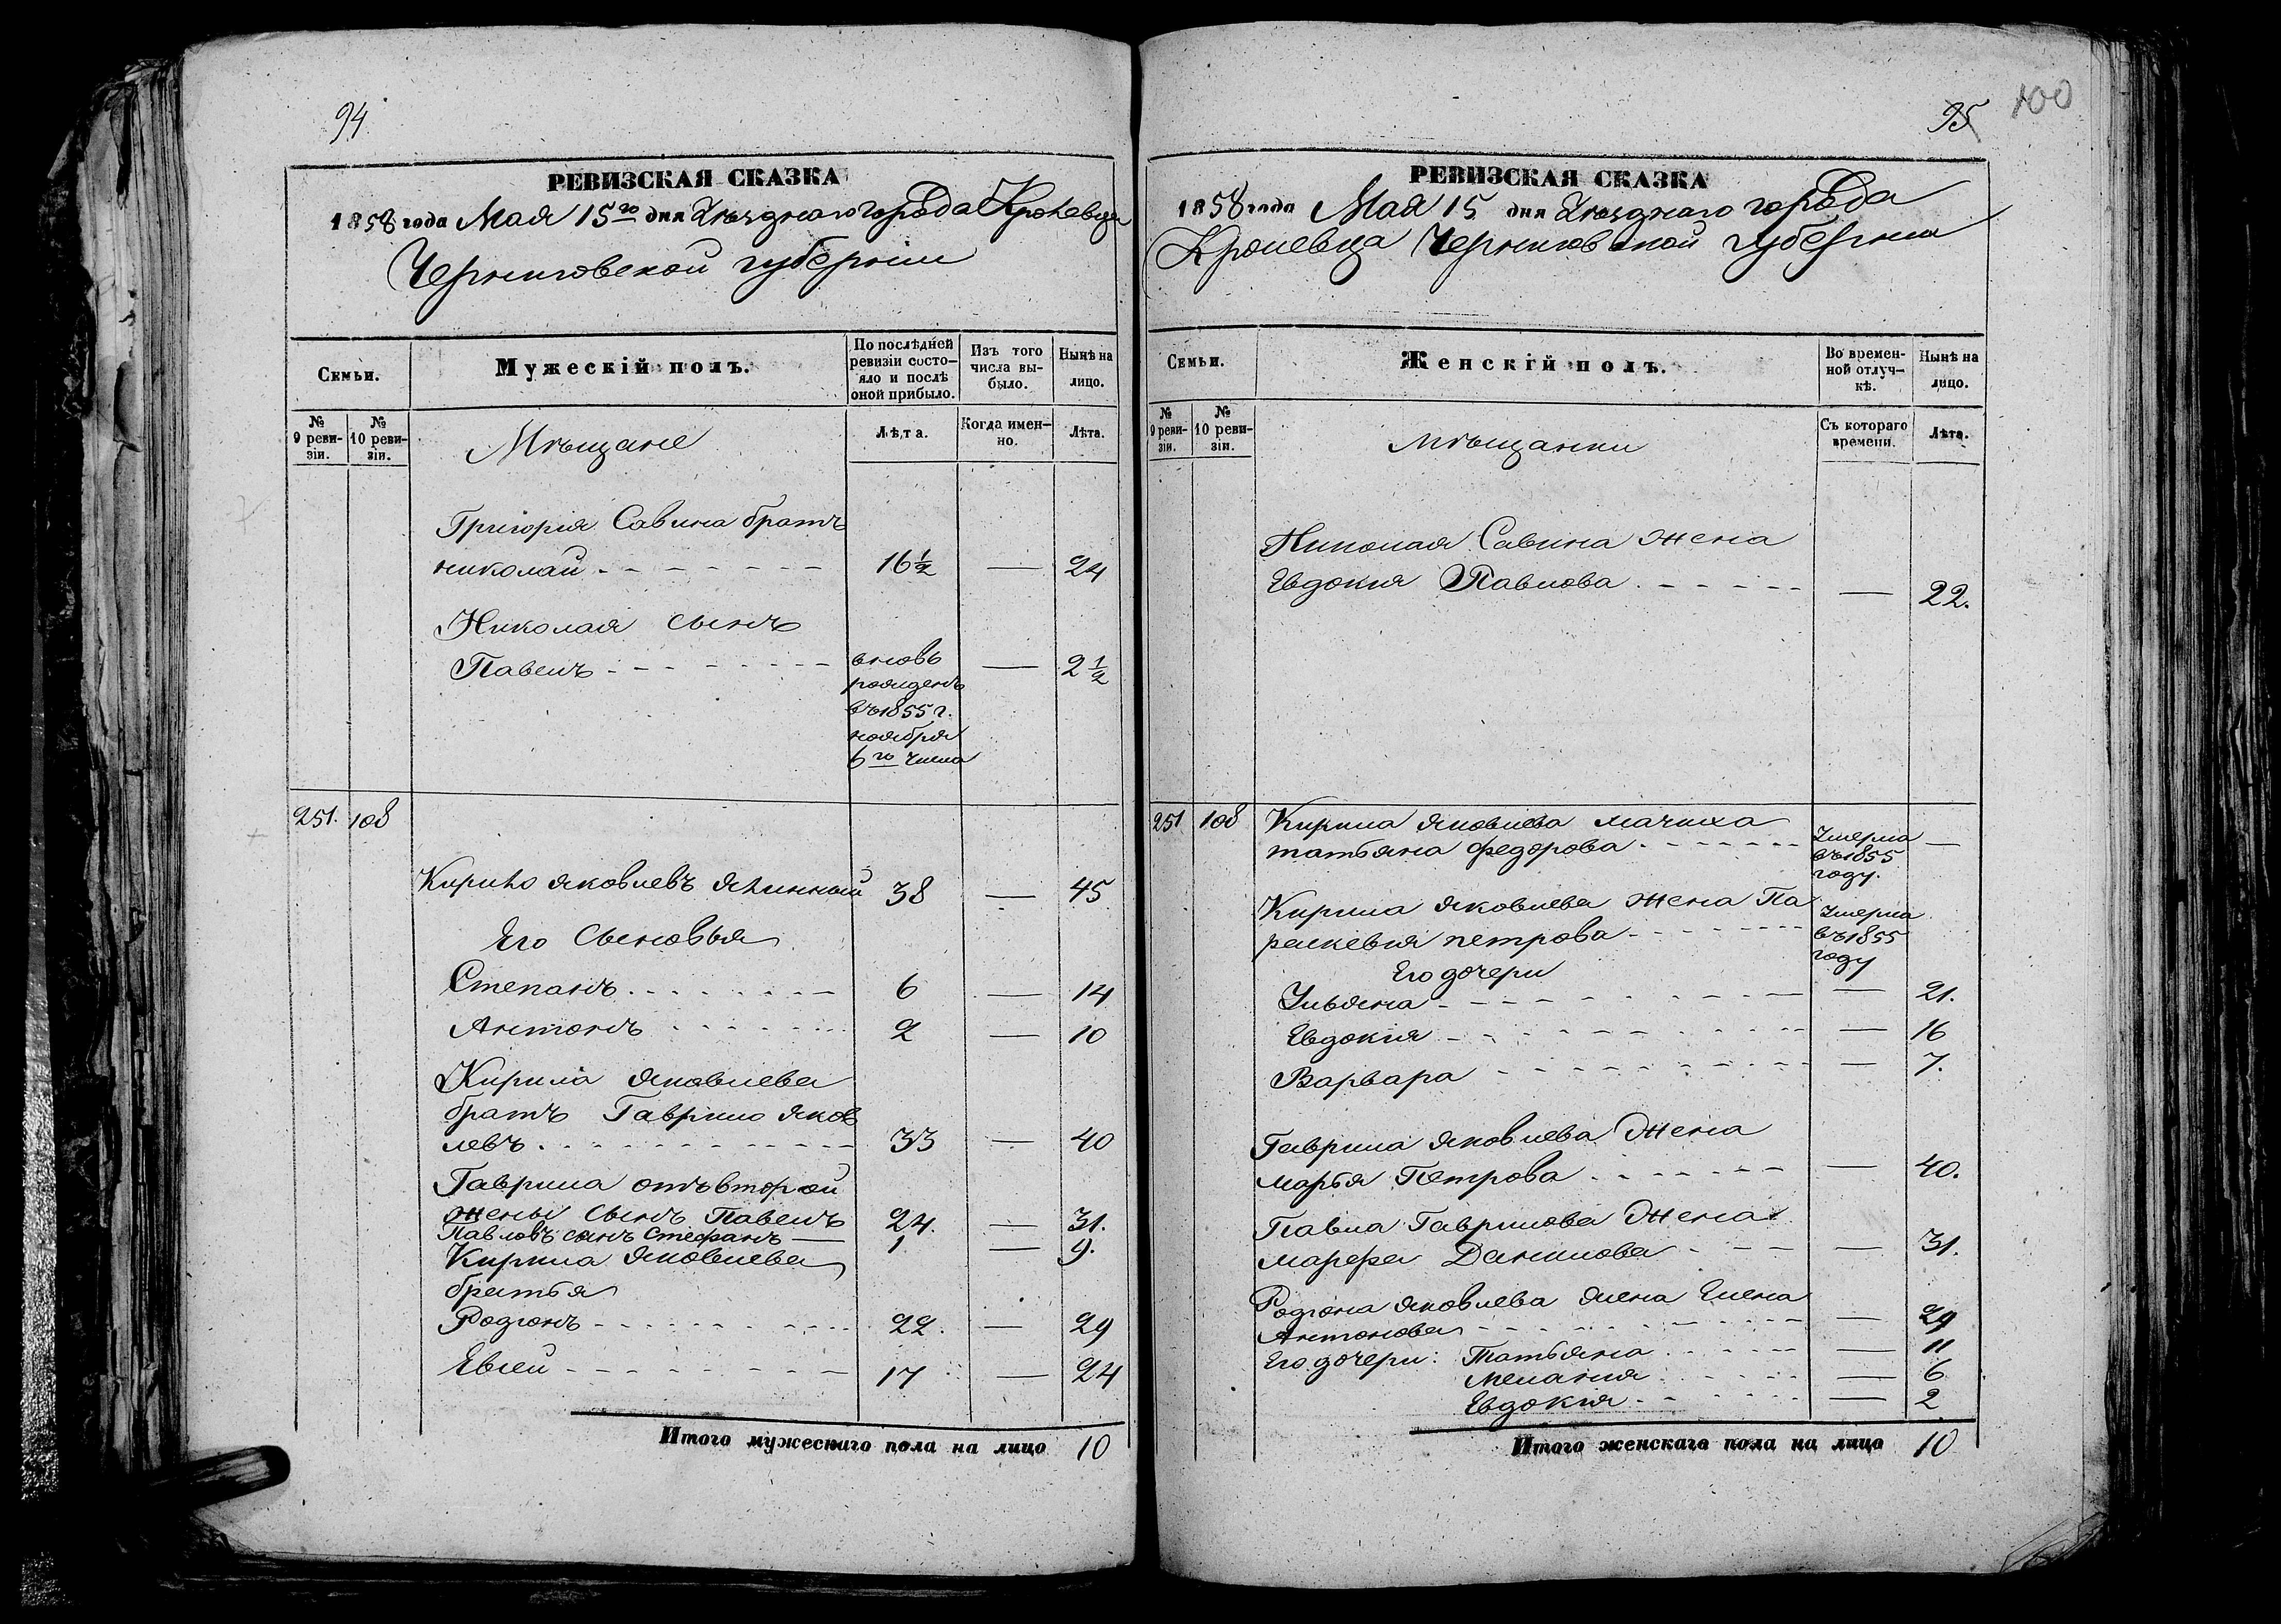 94
РЕВИЗСКАЯ СКАЗКА
1858 года Мая 15го дня Уѣзднаго города Кролевца
Черниговской губерніи
Семьи.
Мужескій полъ.
По послѣдней ревизіи состо-
яло и послѣ
оной прибыло.
Изъ того
числа вы-
было.
Нынѣ на
лицо.
№
9 реви-
зіи.
№
10 реви-
зіи.
Мѣщане
Лѣта.
Когда имен-
но.
Лѣта.
Григорія Савина братъ
николай - - - - - - - 16½ — 24
Николая сынъ
Павелъ - - - - - - - вновь — 2½
рожденъ
въ 1855 г.
ноября
6го числа
251. 108
Кирило Яковлевъ 38 — 45
Его сыновья
Степанъ - - - - - - - 6 — 14
Антонъ - - - - - - - 2 — 10
Кирила Яковлева
братъ Гаврило Яков
левъ - - - - - - - 33 — 40
Гаврила отъ второй
жены сынъ Павелъ 24. — 31.
Павловъ сынъ Стефанъ — 1 — 9.
Кирила Яковлева
братья
Родіонъ - - - - - - - 22. — 29
Евсей - - - - - - - 17 — 24
Итого мужескаго пола на лицо 10
95 100
РЕВИЗСКАЯ СКАЗКА
1858 года Мая 15 дня Уѣзднаго города
Кролевца Черниговской губерніи
Семьи.
Женскій полъ.
Во времен-
ной отлуч-
кѣ.
Нынѣ на
лицо.
№
9 реви-
зіи.
№
10 реви-
зіи.
мѣщанки
Съ котораго
времени.
Лѣта.
Николая Савина жена
Евдокія Павлова - - - - - — 22.
251 108 Кирила Яковлева мачиха
татьяна федорова - - - - - Умерла —
въ 1855
году.
Кирила Яковлева жена Па
раскевія петрова - - - - - Умерла
въ 1855
году
Его дочери
Ульяна - - - - - - - — 21.
Евдокія - - - - - - - — 16
Варвара - - - - - - - — 7.
Гаврила Яковлева жена
марья Петрова - - - - - — 40.
Павла Гаврилова жена
марфа Данилова - - - — 31.
Родіона Яковлева жена Елена
Антонова - - - - - - - — 29
Его дочери: Татьяна - - - - - — 11
Меланія - - - - - — 6
Евдокія - - - - - — 2
Итого женскаго пола на лицо 10